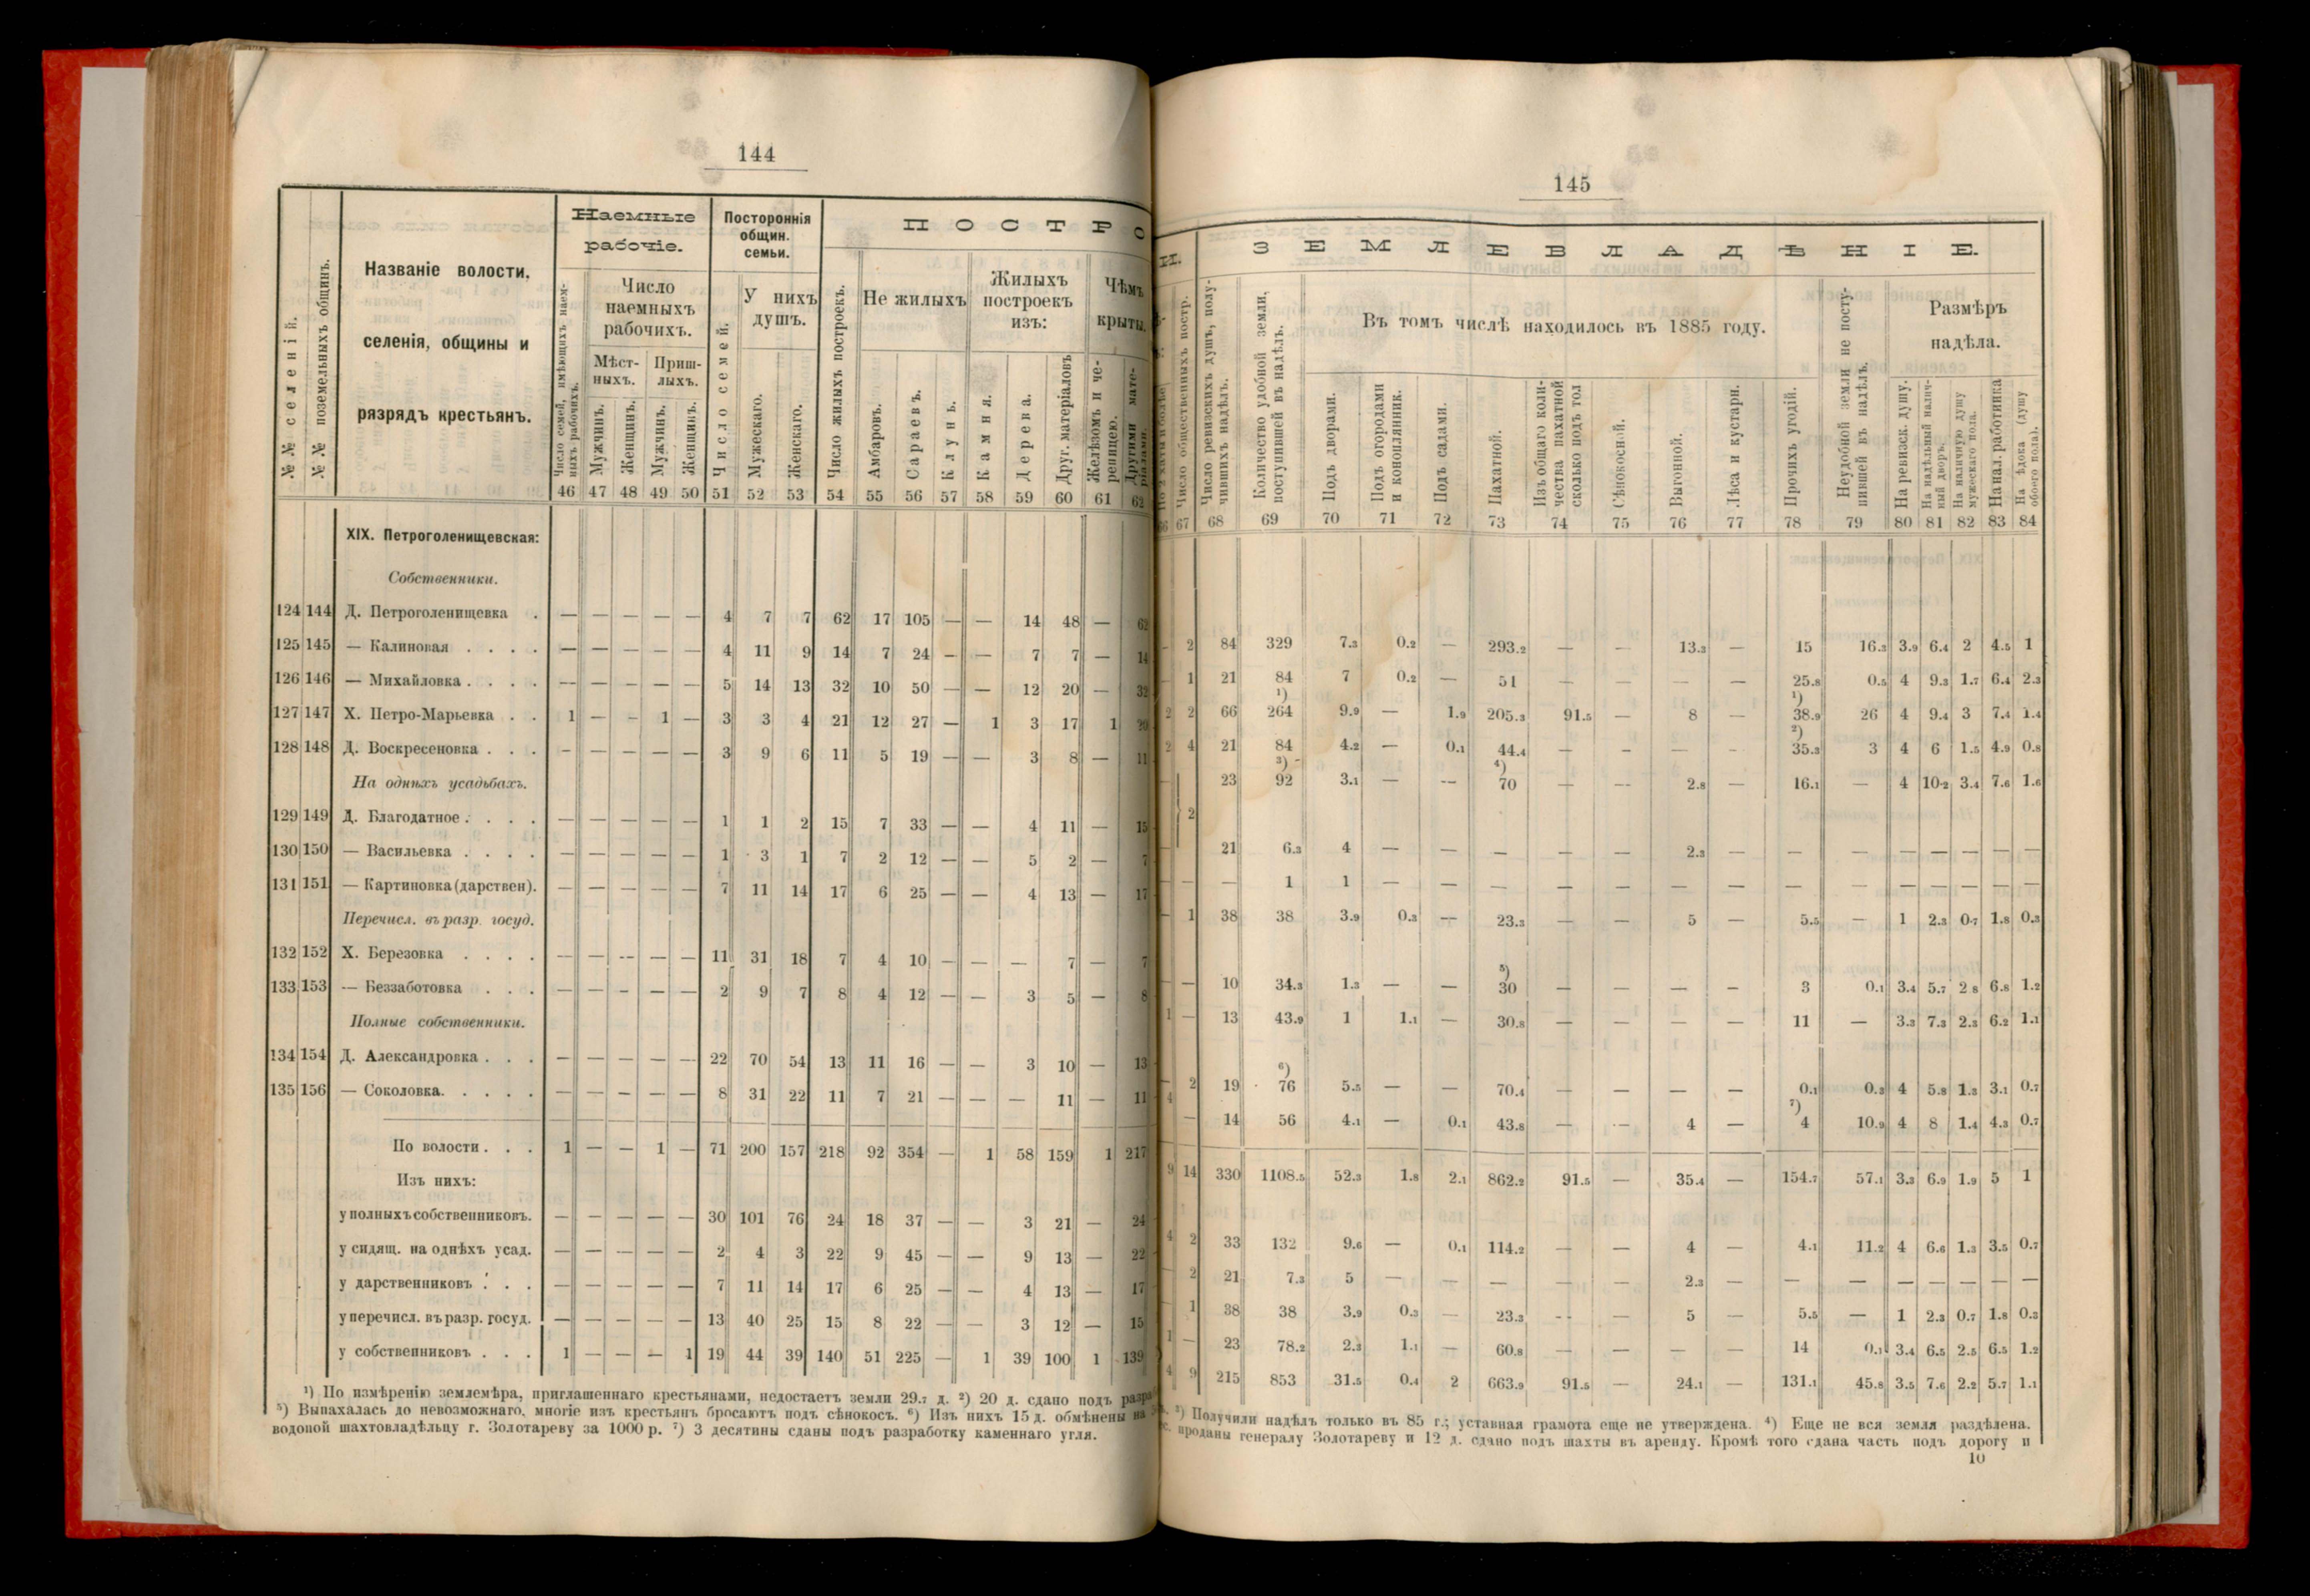 144
Наемные рабочіе.
Постороннія общин. семьи.
ПОСТРО
№№ селеній.
№№ поземельныхъ общинъ.
Названіе волости, селенія, общины и рязрядъ крестьянъ.
Число семей, имѣющихъ наемныхъ рабочихъ.
Число наемныхъ рабочихъ.
Мѣстныхъ. Пришлыхъ.
Мужчинъ. Женщинъ. Мужчинъ. Женщинъ.
Число семей.
У нихъ душъ.
Мужескаго. Женскаго.
Число жилыхъ построекъ.
Не жилыхъ
Амбаровъ. Сараевъ. Клунь.
Жилыхъ построекъ изъ:
Камня. Дерева. Друг. матеріаловъ
Чѣмъ крыты.
Желѣзомъ и черепицею. Другими мате-
46 47 48 49 50 51 52 53 54 55 56 57 58 59 60 61 62
XIX. Петроголенищевская:
Собственники.
124 144 Д. Петроголенищевка . — — — — — 4 7 7 62 17 105 — — 14 48 — 62
125 145 — Калиновая . . . . — — — — — 4 11 9 14 7 24 — — 7 7 — 14
126 146 — Михайловка . . . . — — — — — 5 14 13 32 10 50 — — 12 20 — 32
127 147 Х. Петро-Марьевка . . 1 — — 1 — 3 3 4 21 12 27 — 1 3 17 1 20
128 148 Д. Воскресеновка . . . — — — — — 3 9 6 11 5 19 — — 3 8 — 11
На однѣхъ усадьбахъ.
129 149 Д. Благодатное . . . . — — — — — 1 1 2 15 7 33 — — 4 11 — 15
130 150 — Васильевка . . . . — — — — — 1 3 1 7 2 12 — — 5 2 — 7
131 151 — Картиновка (дарствен). — — — — — 7 11 14 17 6 25 — — 4 13 — 17
Перечисл. въ разр. госуд.
132 152 Х. Березовка . . . . — — — — — 11 31 18 7 4 10 — — — 7 — 7
133 153 — Беззаботовка . . . — — — — — 2 9 7 8 4 12 — — 3 5 — 8
Полные собственники.
134 154 Д. Александровка . . . — — — — — 22 70 54 13 11 16 — — 3 10 — 13
135 156 — Соколовка. . . . . — — — — — 8 31 22 11 7 21 — — — 11 — 11
По волости . . . 1 — — 1 — 71 200 157 218 92 354 — 1 58 159 1 217
Изъ нихъ:
у полныхъ собственниковъ. — — — — — 30 101 76 24 18 37 — — 3 21 — 24
у сидящ. на однѣхъ усад. — — — — — 2 4 3 22 9 45 — — 9 13 — 22
у дарственниковъ . . . — — — — — 7 11 14 17 6 25 — — 4 13 — 17
у перечисл. въ разр. госуд. — — — — — 13 40 25 15 8 22 — — 3 12 — 15
у собственниковъ . . . 1 — — — 1 19 44 39 140 51 225 — 1 39 100 1 139
¹) По измѣренію землемѣра, приглашеннаго крестьянами, недостаетъ земли 29.7 д. ²) 20 д. сдано подъ разра
⁵) Выпахалась до невозможнаго, многіе изъ крестьянъ бросаютъ подъ сѣнокосъ. ⁶) Изъ нихъ 15 д. обмѣнены на
водопой шахтовладѣльцу г. Золотареву за 1000 р. ⁷) 3 десятины сданы подъ разработку каменнаго угля.
145
И. ЗЕМЛЕВЛАДѢНІЕ.
По 2 хаты и болѣе
Число общественныхъ постр.
Число ревизскихъ душъ, получившихъ надѣлъ.
Количество удобной земли, поступившей въ надѣлъ.
Въ томъ числѣ находилось въ 1885 году.
Подъ дворами. Подъ огородами и коноплянник. Подъ садами. Пахатной. Изъ общаго количества пахатной сколько подъ тол Сѣнокосной. Выгонной. Лѣса и кустарн. Прочихъ угодій.
Неудобной земли не поступившей въ надѣлъ.
Размѣръ надѣла.
На ревизск. душу. На надѣльный наличный дворъ. На наличную душу мужескаго пола. На нал. работника На ѣдока (душу обоего пола).
66 67 68 69 70 71 72 73 74 75 76 77 78 79 80 81 82 83 84
— 2 84 329 7.3 0.2 — 293.2 — — 13.3 — 15 16.3 3.9 6.4 2 4.5 1
— 1 21 84 7 0.2 — 51 — — — — 25.8 0.5 4 9.3 1.7 6.4 2.3
2 2 66 ¹) 264 9.9 — 1.9 205.3 91.5 — 8 — ¹) 38.9 26 4 9.4 3 7.4 1.4
2 4 21 84 4.2 — 0.1 44.4 — — — — ²) 35.3 3 4 6 1.5 4.9 0.8
— 23 ³) 92 3.1 — — ⁴) 70 — — 2.8 — 16.1 — 4 10.2 3.4 7.6 1.6
2
— 21 6.3 4 — — — — — 2.3 — — — — — — — —
— — — 1 1 — — — — — — — — — — — — — —
— 1 38 38 3.9 0.3 — 23.3 — — 5 — 5.5 — 1 2.3 0.7 1.8 0.3
— — 10 34.3 1.3 — — ⁵) 30 — — — — 3 0.1 3.4 5.7 2 8 6.8 1.2
1 — 13 43.9 1 1.1 — 30.8 — — — — 11 — 3.3 7.3 2.3 6.2 1.1
— 2 19 ⁶) 76 5.5 — — 70.4 — — — — 0.1 0.3 4 5.8 1.3 3.1 0.7
4 — 14 56 4.1 — 0.1 43.8 — — 4 — ⁷) 4 10.9 4 8 1.4 4.3 0.7
9 14 330 1108.5 52.3 1.8 2.1 862.2 91.5 — 35.4 — 154.7 57.1 3.3 6.9 1.9 5 1
4 2 33 132 9.6 — 0.1 114.2 — — 4 — 4.1 11.2 4 6.6 1.3 3.5 0.7
— 2 21 7.3 5 — — — — — 2.3 — — — — — — — —
— 1 38 38 3.9 0.3 — 23.3 — — 5 — 5.5 — 1 2.3 0.7 1.8 0.3
1 — 23 78.2 2.3 1.1 — 60.8 — — — — 14 0.1 3.4 6.5 2.5 6.5 1.2
4 9 215 853 31.5 0.4 2 663.9 91.5 — 24.1 — 131.1 45.8 3.5 7.6 2.2 5.7 1.1
³) Получили надѣлъ только въ 85 г.; уставная грамота еще не утверждена. ⁴) Еще не вся земля раздѣлена.
проданы генералу Золотареву и 12 д. сдано подъ шахты въ аренду. Кромѣ того сдана часть подъ дорогу и
10